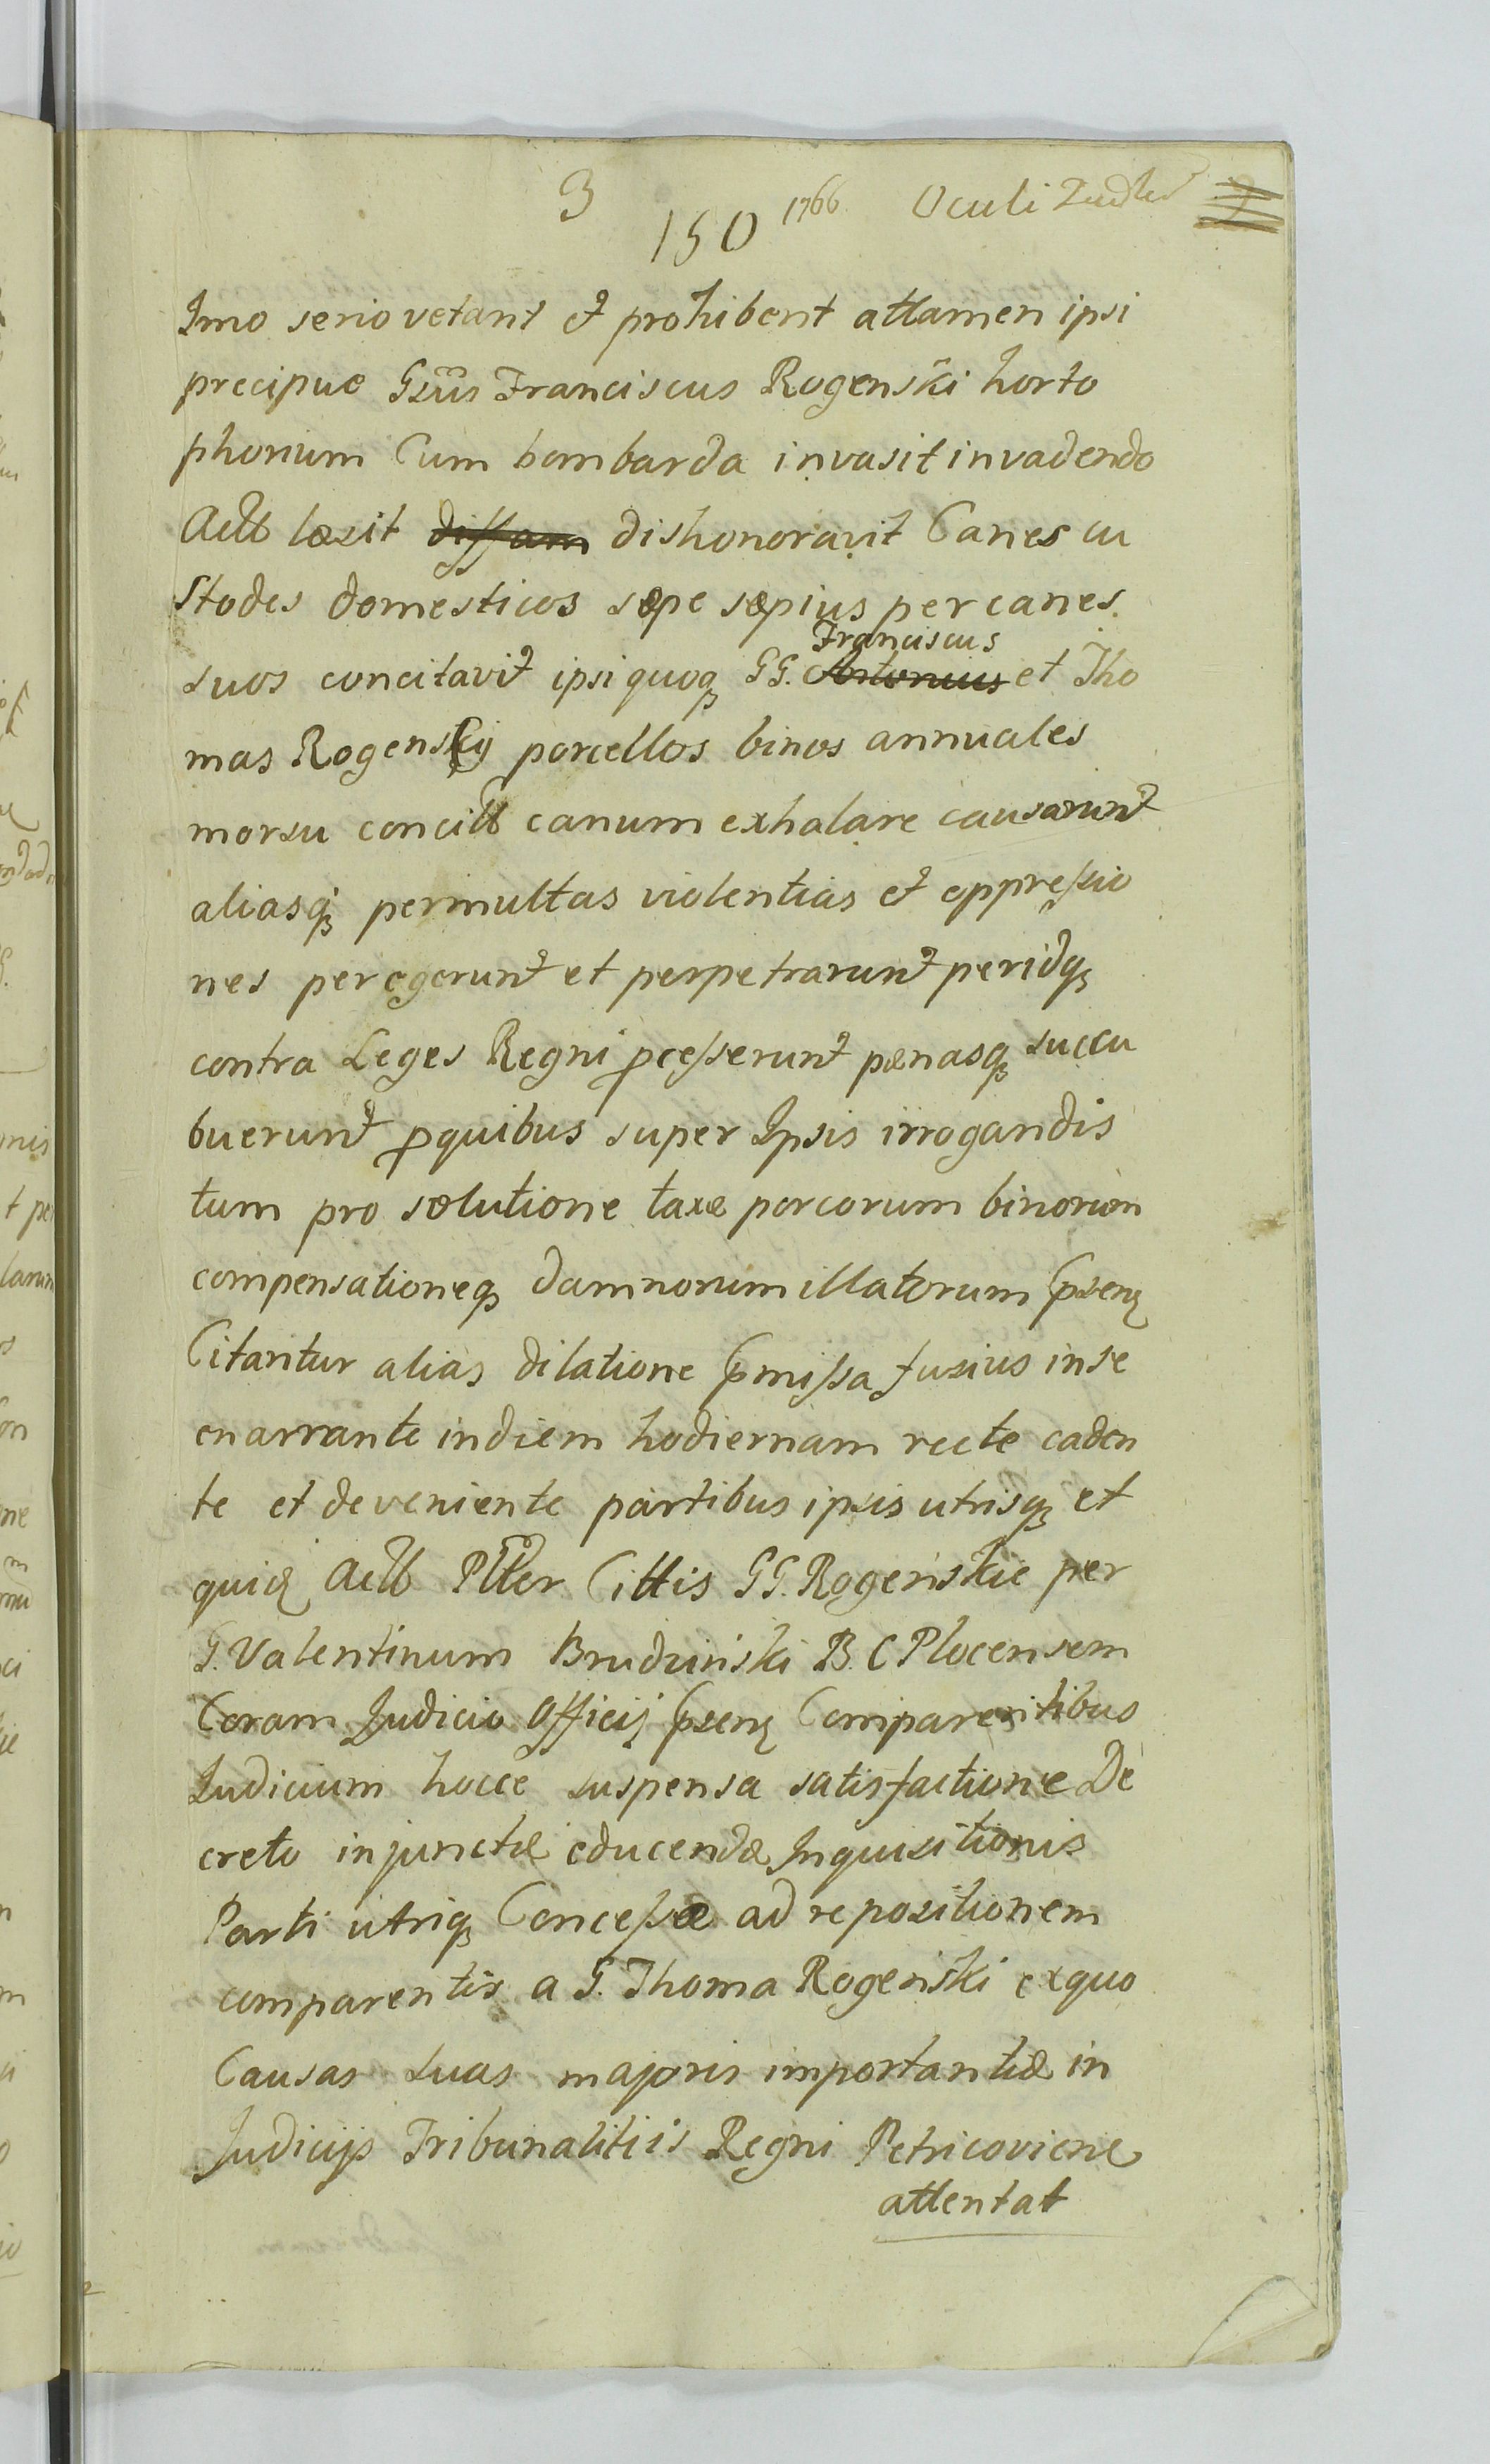 3
150 1766 Oculi
Imo serio vetant et prohibent attamen ipsi
precipue Gsus Franciscus Rogenski horto
phorium Cum bombarda invasit invadendo
Actt læsit diffam dishonoravit Canes cu
stodes domesticos sæpe sæpius per canes
Franciscus
suos concitavit ipsi quoq GG. Antonius et Tho
mas Rogenscij porcellos binos annuales
morsu concitt canum exhalare causarunt
aliasq permultas violentias et oppressio
nes peregerunt et perpetrarunt per idq
contra Leges Regni pcesserunt pænasq succu
buerunt p quibus super Ipsis irrogandis
tum pro solutione taxæ porcorum binorum
compensationeq damnorum illatorum psenq
Citantur alias dilatione pmissa fusius in se
enarrante in diem hodiernam recte caden
te et deveniente partibus ipsis utrisq et
quidq Actt Plter Cittis GG. Rogenskie per
G. Valentinum Brudzinski B. C Plocensem
Coram Judicio Officij psenq Comparentibus
Judicium hocce suspensa satisfactione De
creto injunctæ educendæ Inquisitionis
Parti utriq Concessæ ad repositionem
comparentis a G. Thoma Rogenski exquo
Causas suas majoris importantiæ in
Judicijs Tribunalitiis Regni Petricovien
attentat